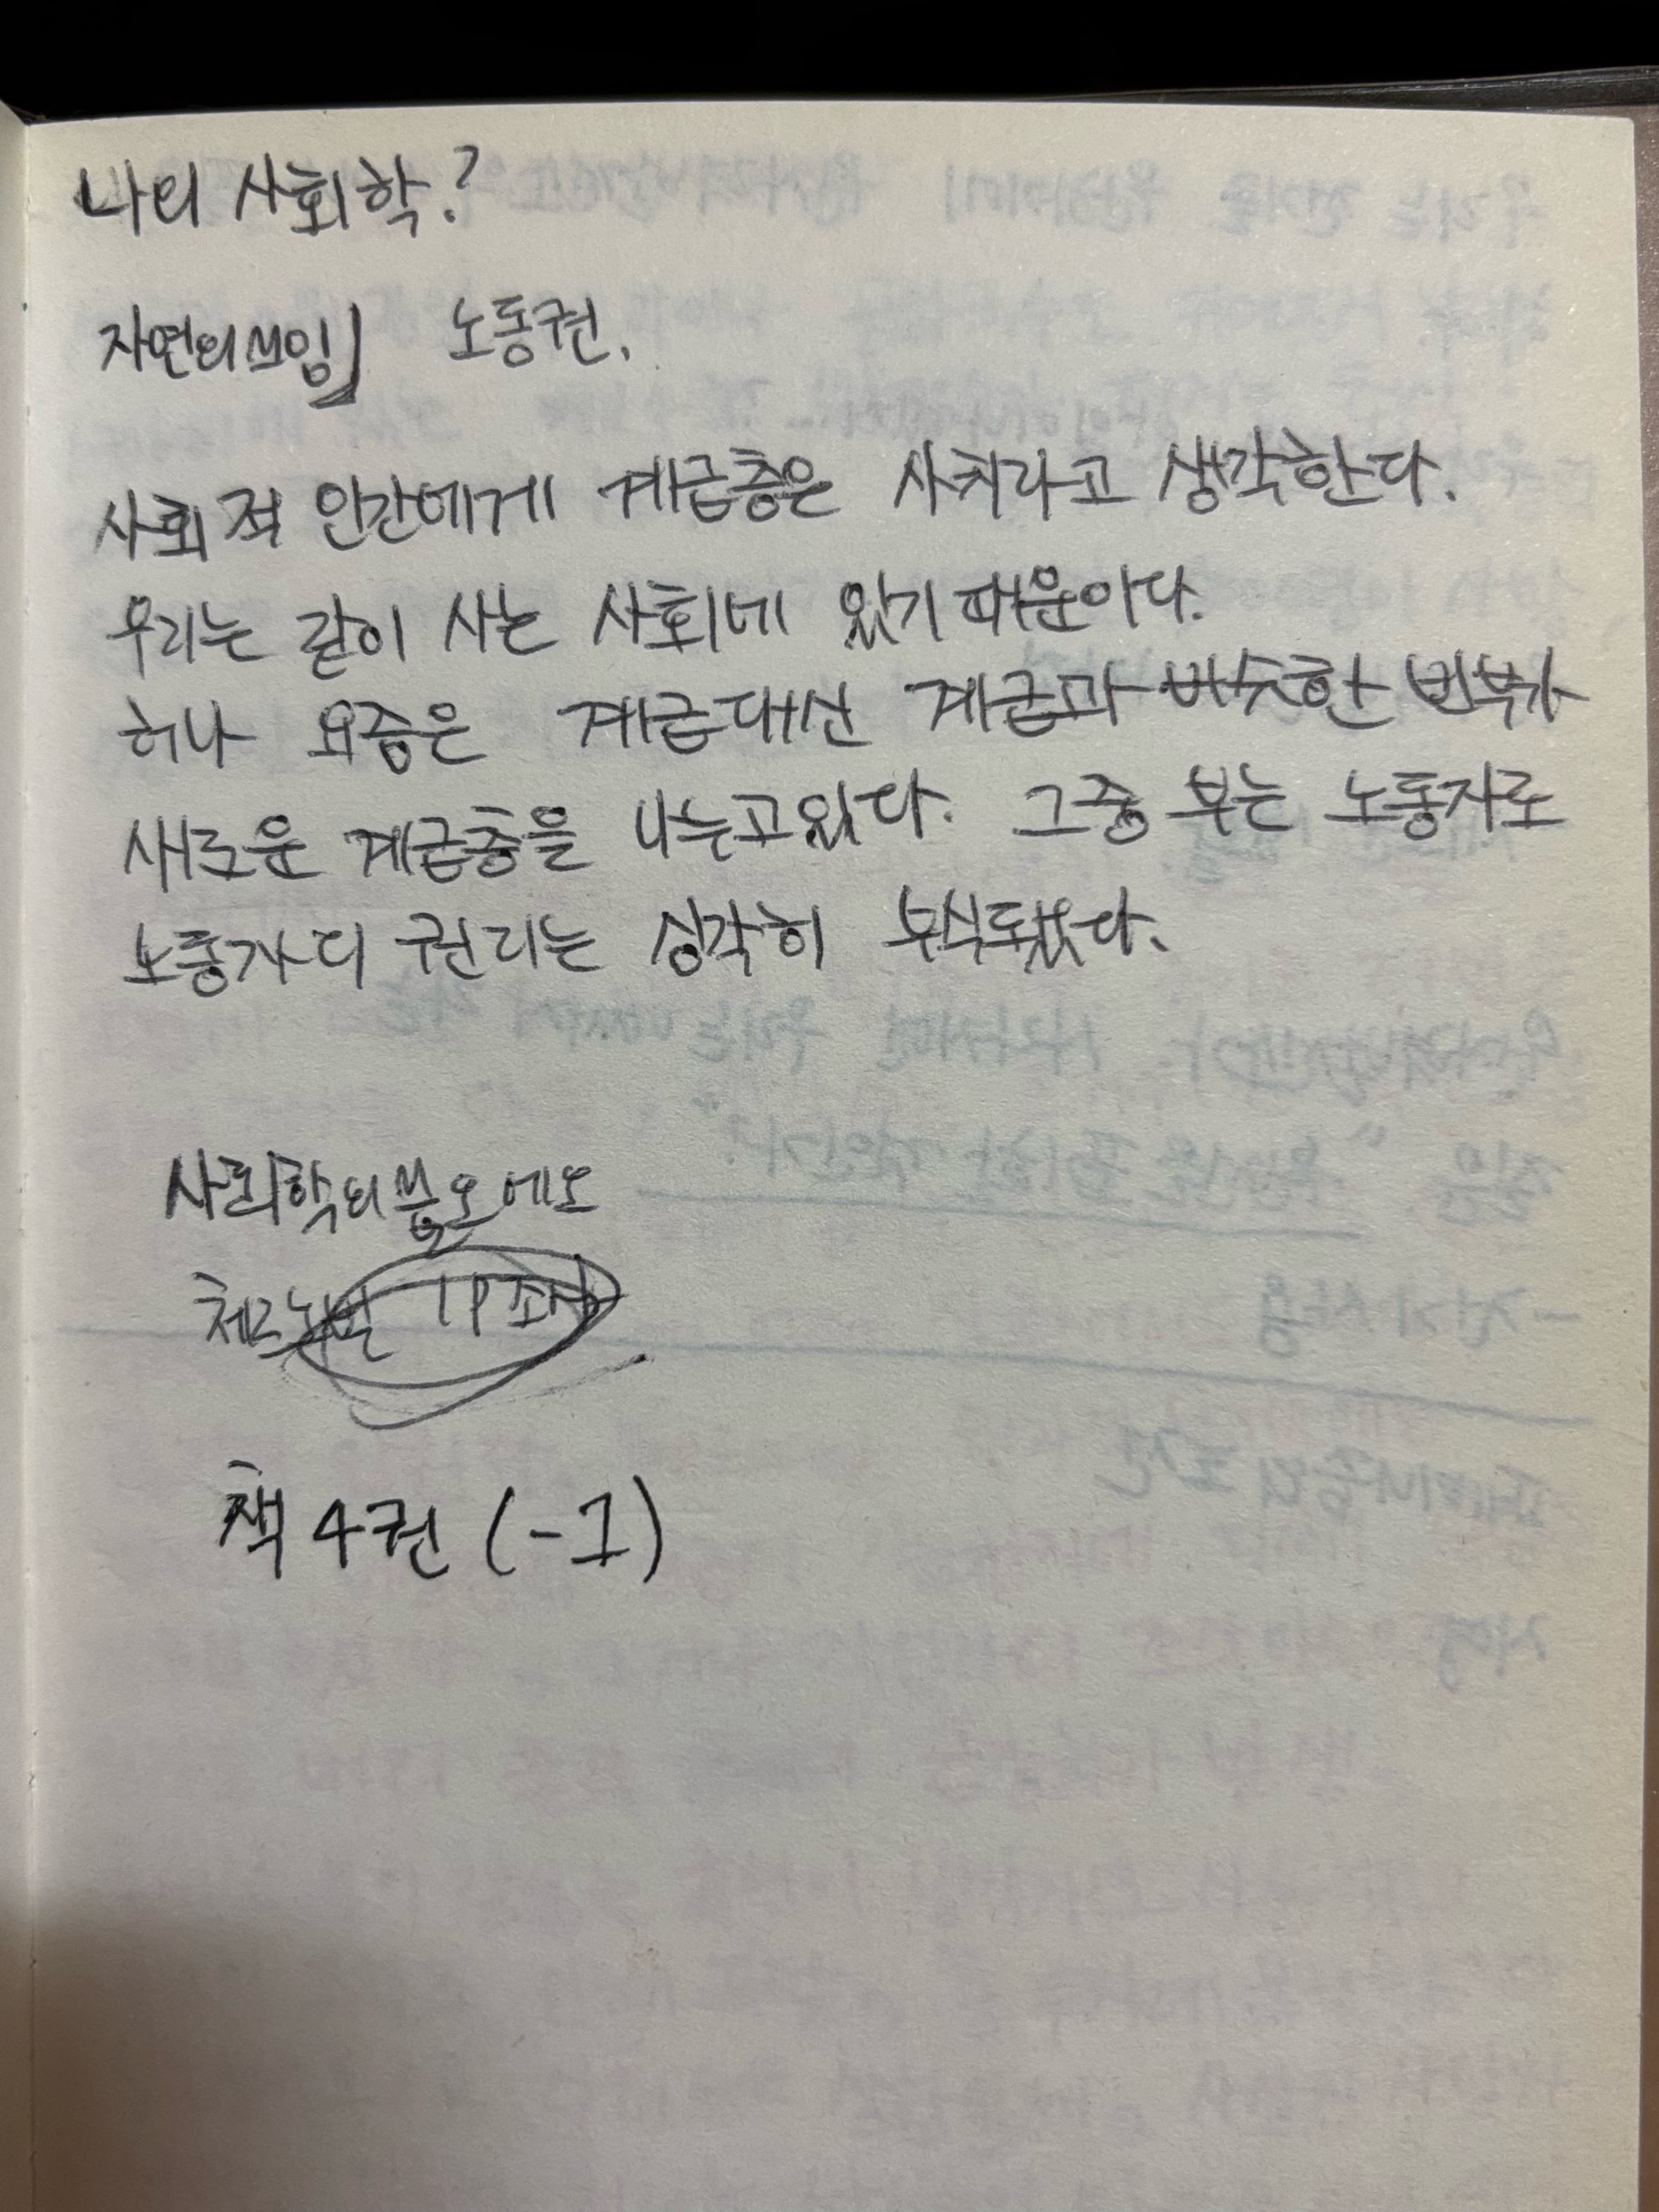 나의 사회학?
자연의쓰임 노동권.
사회적 인간에게 계급층은 사치라고 생각한다.
우리는 같이 사는 사회에 있기 때문이다.
허나 요즘은 계급대신 계급과 비슷한 빈부가
새로운 계급층을 나누고있다. 그중 부는 노동자로
노동자의 권리는 심각히 부식됐었다.
사회학의
1P 조사
책 4권 (-1)